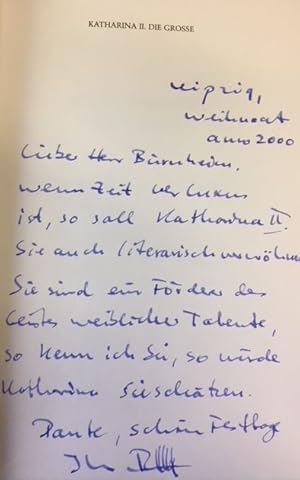 KATHARINA II. DIE GROSSE
Leipzig,
Weihnacht
anno 2000
Lieber Herr
wenn Zeit
ist, so soll Katharina II.
Sie auch literarisch verwöhnen
Sie sind ein Förderer des
weiblicher Talente,
so kenn ich Sie, so würde
Katharina Sie schätzen.
Danke, schöne Festtage
Ihr